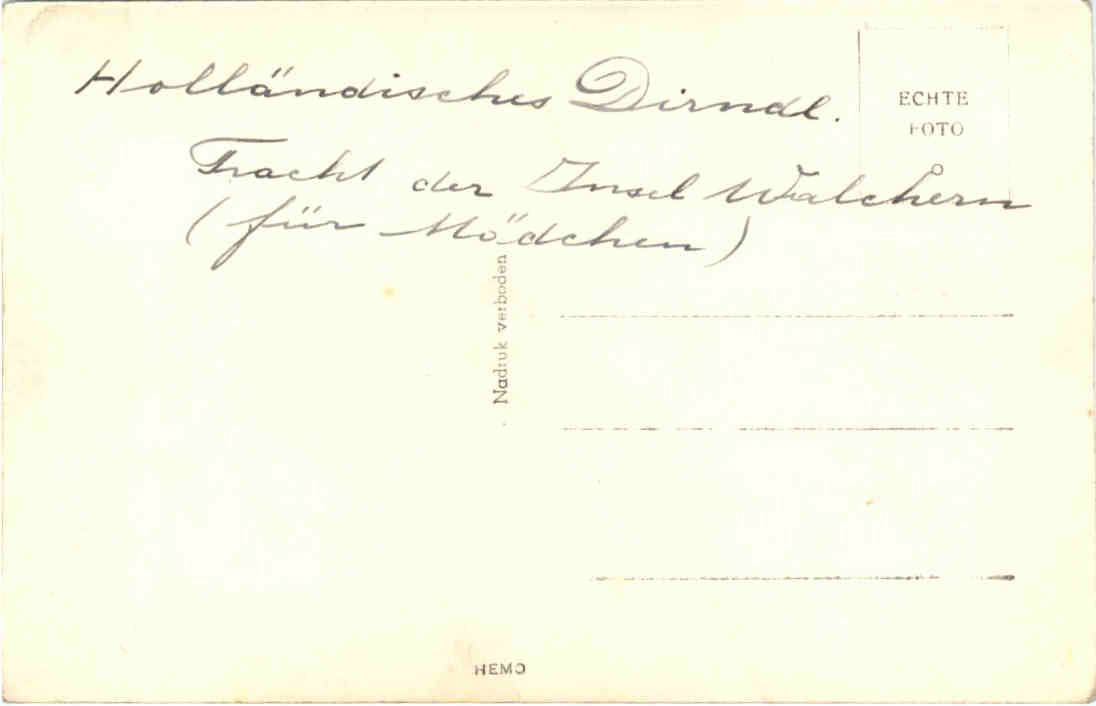 Holländisches Dirndl.
ECHTE
FOTO
Tracht der Insel Walchern
(für Mädchen)
Nadruk verboden
HEMO